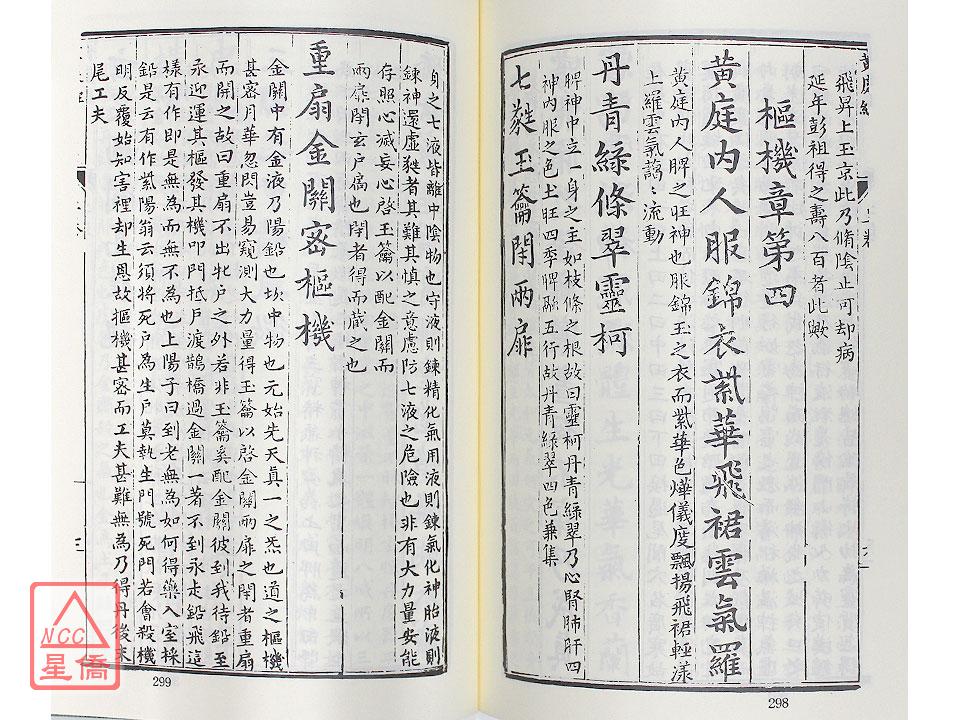 飛昇上玉京此乃脩陰止可却病
延年彭祖得之壽八百者此歟
樞機章第四
黃庭內人服錦衣紫華飛裙雲氣羅
黃庭內人脾之旺神也服錦玉之衣而紫華色燁儀度飄揚飛裙輕漾
上羅雲氣靄〻流動
丹青綠條翠靈柯
脾神中立一身之主如枝條之根故曰靈柯丹青綠翠乃心腎肺肝四
神內服之色土旺四季脾融五行故丹青綠翠四色兼集
七蕤玉籥閉兩扉
298
身之七液皆離中陰物也守液則鍊精化氣用液則鍊氣化神胎液則
鍊神還虛蕤者其難其慎之意慮防七液之危險也非有大力量安能
存照心滅妄心啓玉籥以配金關而
兩扉閉玄戶扃也閉者得而藏之也
重扇金關密樞機
金關中有金液乃陽鉛也坎中物也元始先天真一之炁也道之樞機
甚密月華忽閃豈易窺測大力量得玉籥以啓金關兩扉之閉者重扇
而開之故曰重扇不出牝戶之外若非玉籥奚配金關彼到我待鉛至
汞迎運其樞發其機叩門抵戶渡鵲橋過金關一著不到汞走鉛飛這
樣有作即是無為而無不為也上陽子曰到老無為如何得藥入室採
鉛是去有作紫陽翁云須將死戶為生戶莫執生門號死門若會殺機
明反覆始知害裡却生恩故樞機甚密而工夫甚難無為乃得丹後末
尾工夫
299
NCC
星僑